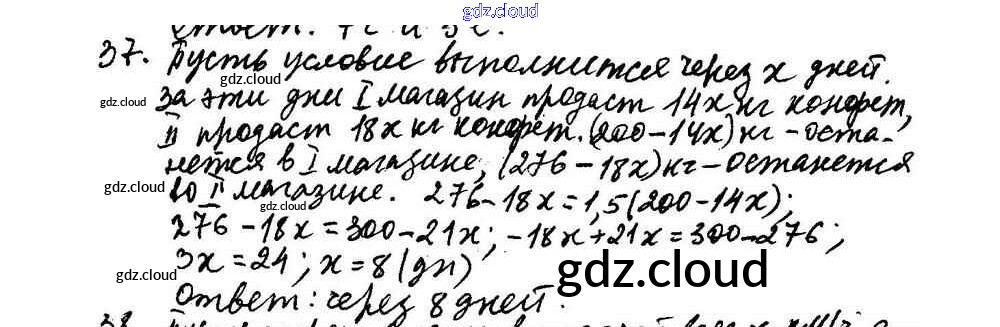 gdz.cloud
Ответ: 7с и 5с.
37. Пусть условие выполнится через x дней.
gdz.cloud
За эти дни I магазин продаст 14x кг конфет,
gdz.cloud
II продаст 18x кг конфет. (200-14x) кг - оста-
gdz.cloud
нется в I магазине, (276-18x) кг - останется
gdz.cloud
во II магазине. 276-18x=1,5(200-14x);
gdz.cloud
276-18x=300-21x; -18x+21x=300-276;
3x=24; x=8 (дн)
gdz.cloud
gdz.cloud
Ответ: через 8 дней.
38.